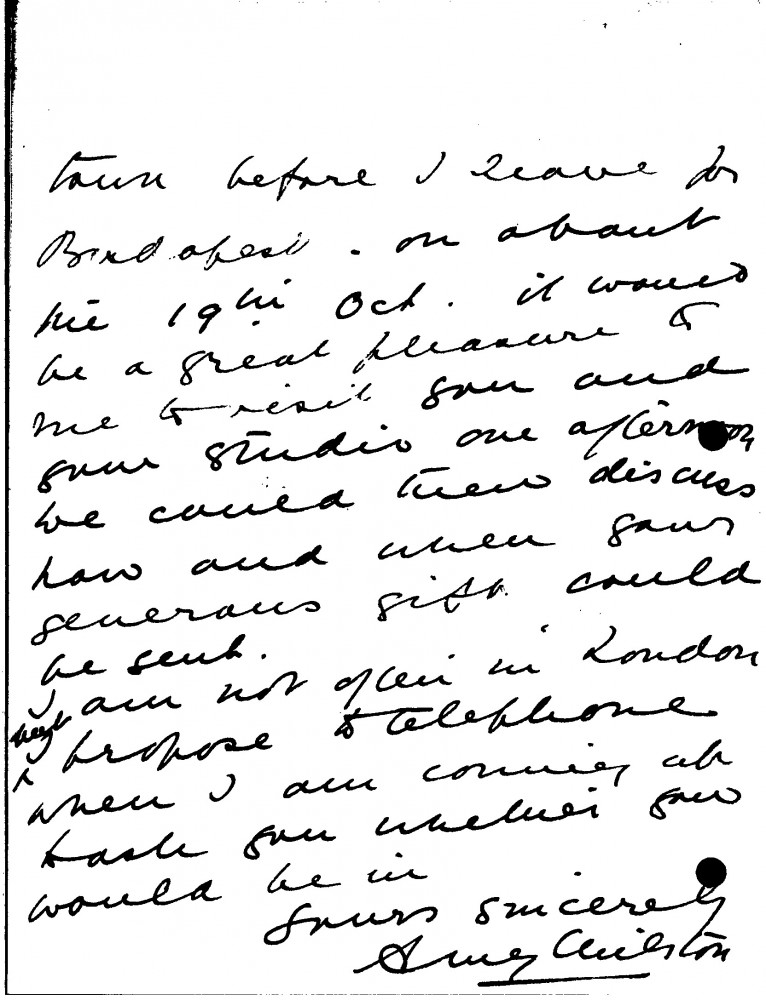 town before I leave for
Budapest. on about
the 19th Oct. it would
be a great pleasure to
me to visit you and
your studio one afternoon
we could then discuss
how and when your
generous gift could
be sent.
I am not often in London
but
I propose to telephone
when I am coming up
to ask you whether you
would be in
yours sincerely
Amy